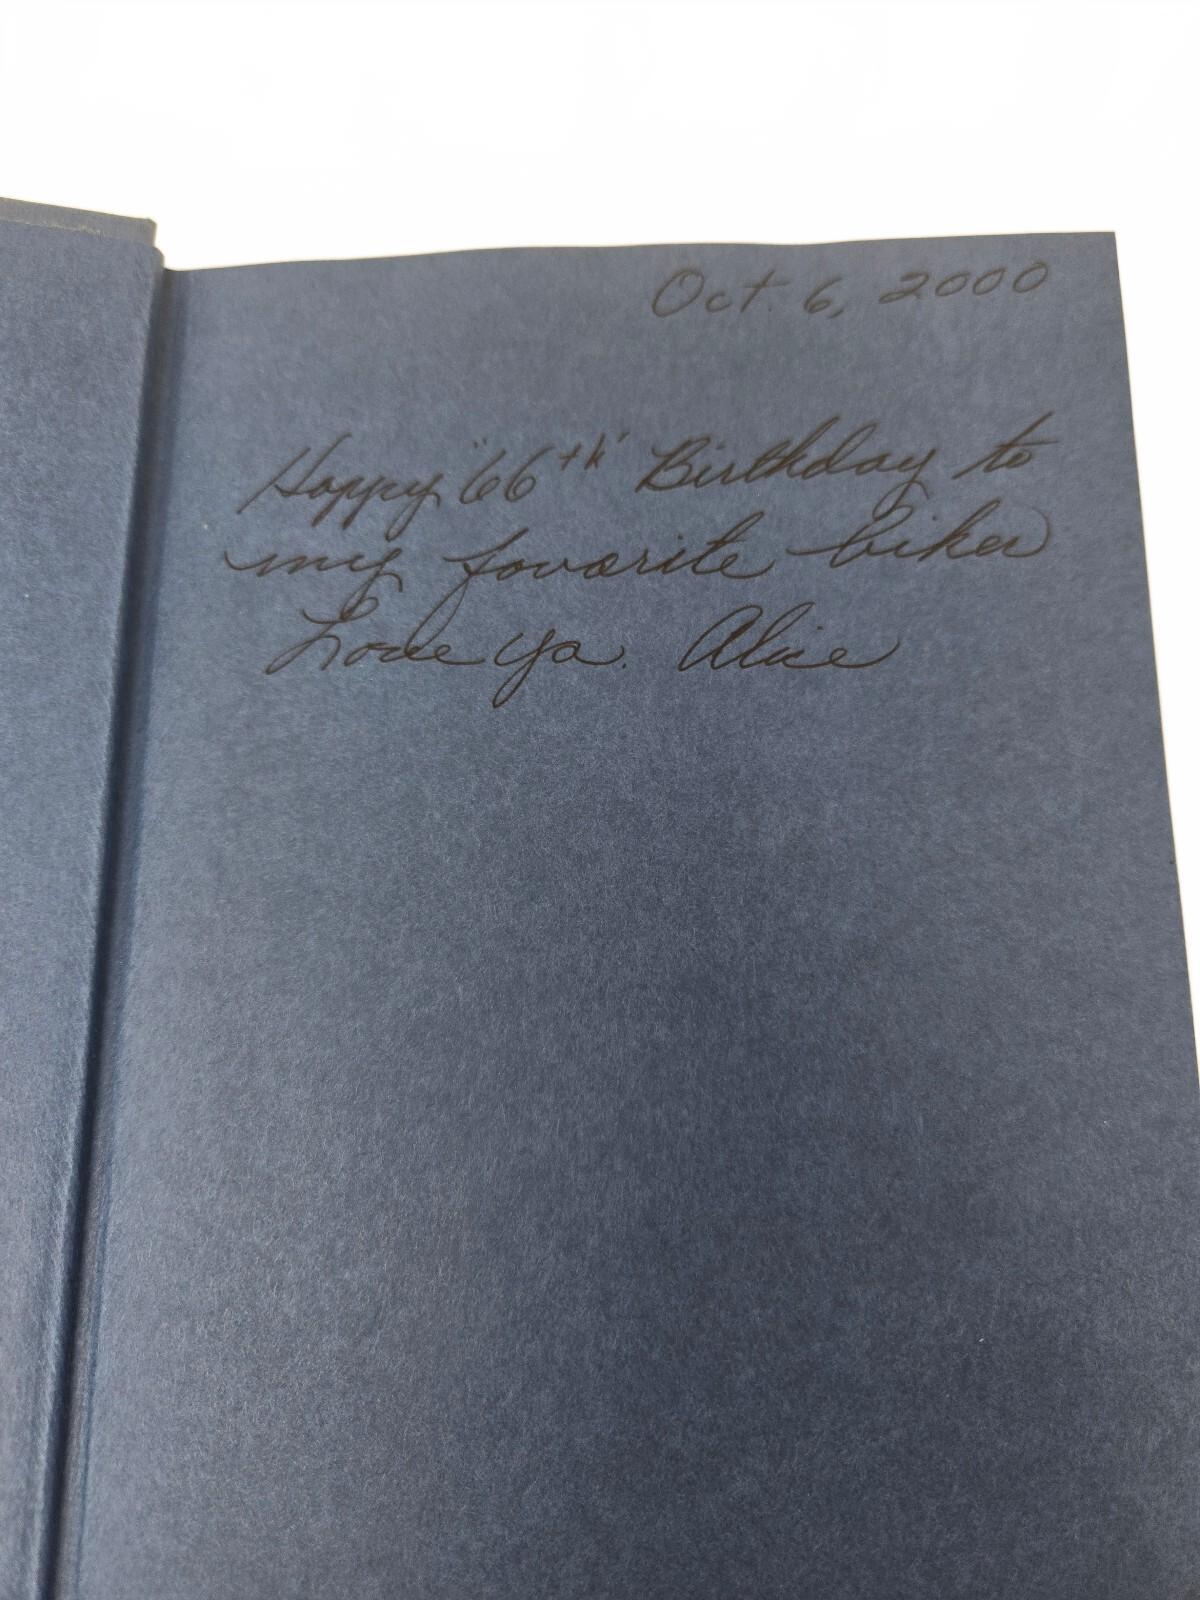 Oct. 6, 2000
Happy "66th" Birthday to
my favorite biker
Love ya. Alice